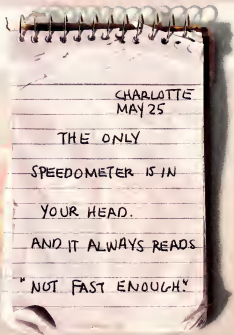 CHARLOTTE
MAY 25
THE ONLY
SPEEDOMETER IS IN
YOUR HEAD.
AND IT ALWAYS READS
"NOT FAST ENOUGH"